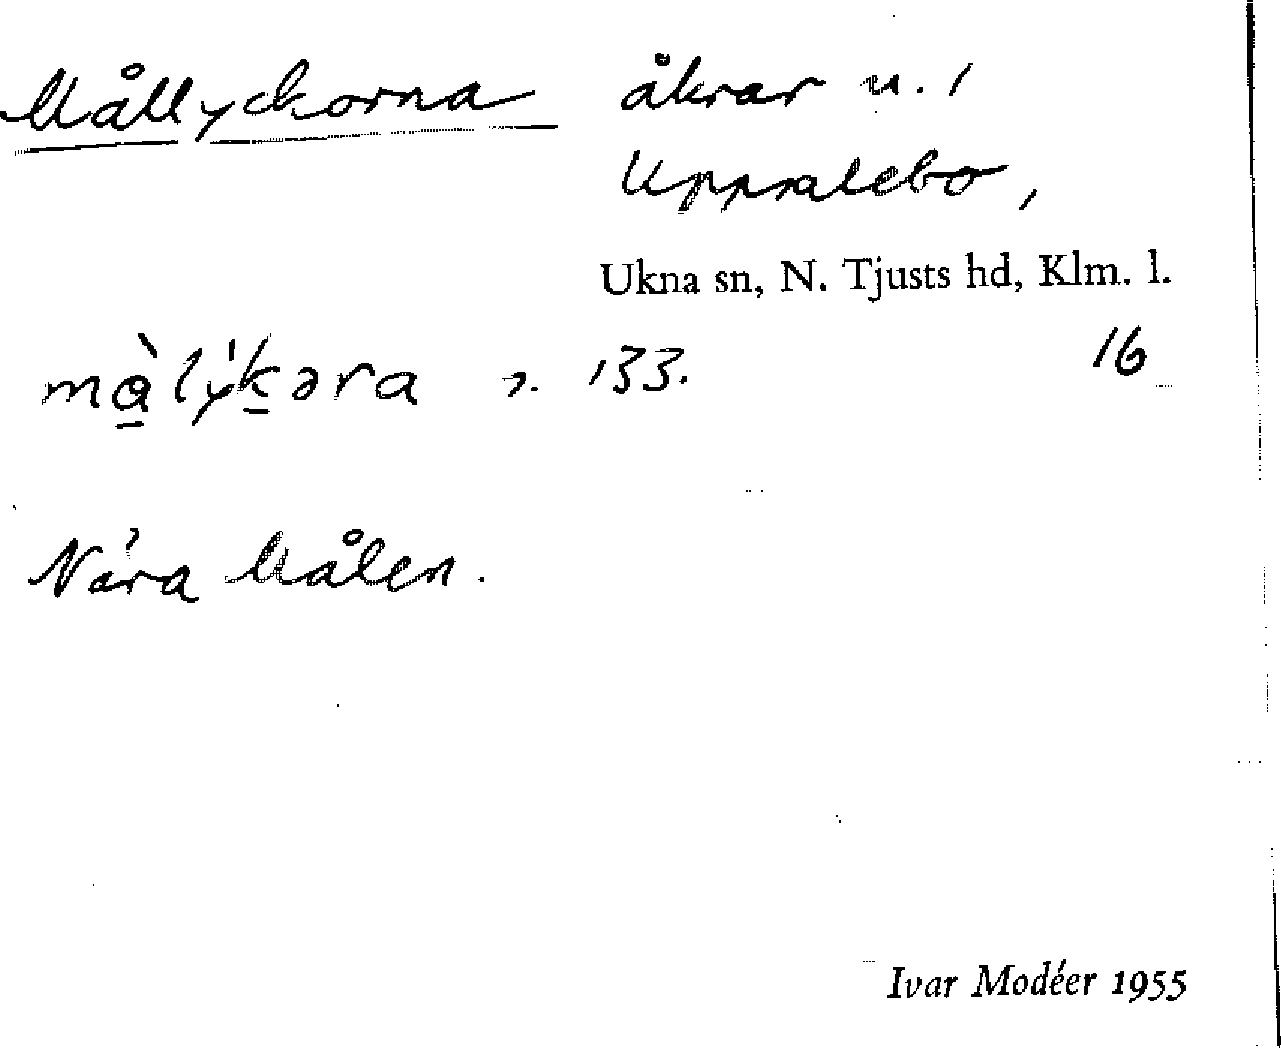 Mållyckorna åkrar u. 1
Uppsalebo,
Ukna sn, N. Tjusts hd, Klm. l.
133. 16
Nära Målen.
Ivar Modéer 1955